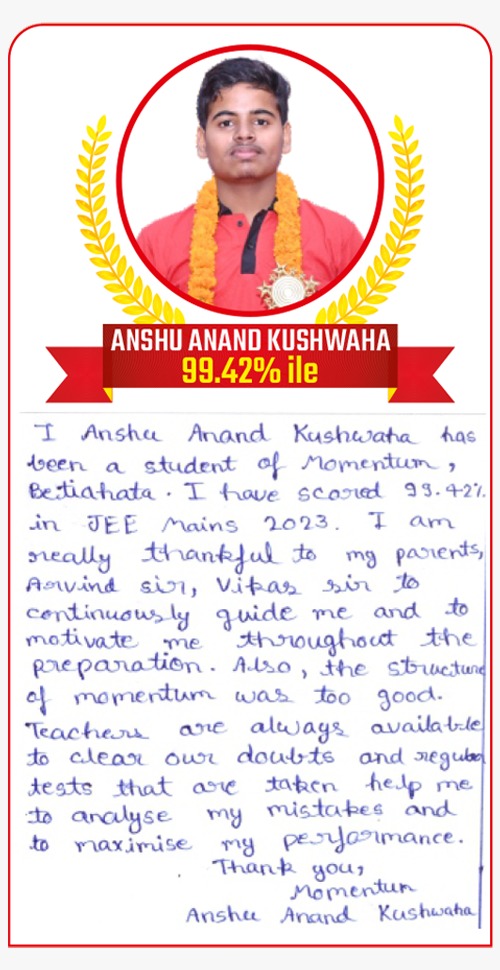 ANSHU ANAND KUSHWAHA
99.42% ile
I Anshu Anand Kushwaha has
been a student of Momentum,
Betiahata. I have scored 99.42%
in JEE Mains 2023. I am
really thankful to my parents,
Arvind sir, Vikas sir to
continuously guide me and to
motivate me throughout the
preparation. Also, the structure
of momentum was too good.
Teachers are always available
to clear our doubts and regular
tests that are taken help me
to analyse my mistakes and
to maximise my performance.
Thank you,
Momentum
Anshu Anand Kushwaha